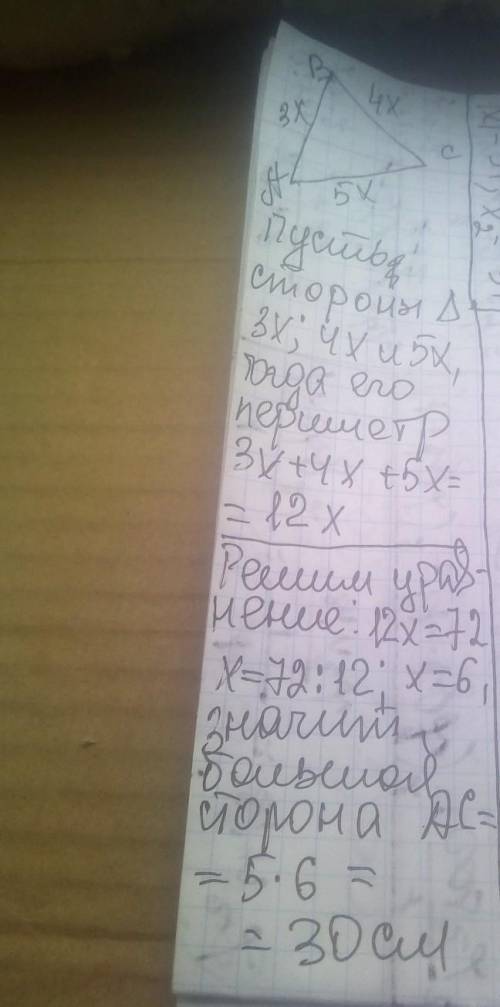 B
4x
3x
C
A
5x
Пусть
стороны Δ
3x; 4x и 5x,
тогда его
периметр
3x+4x+5x=
=12x
Решим урав-
нение: 12x=72
x=72:12; x=6,
значит
большая
сторона AC=
=5·6=
=30см